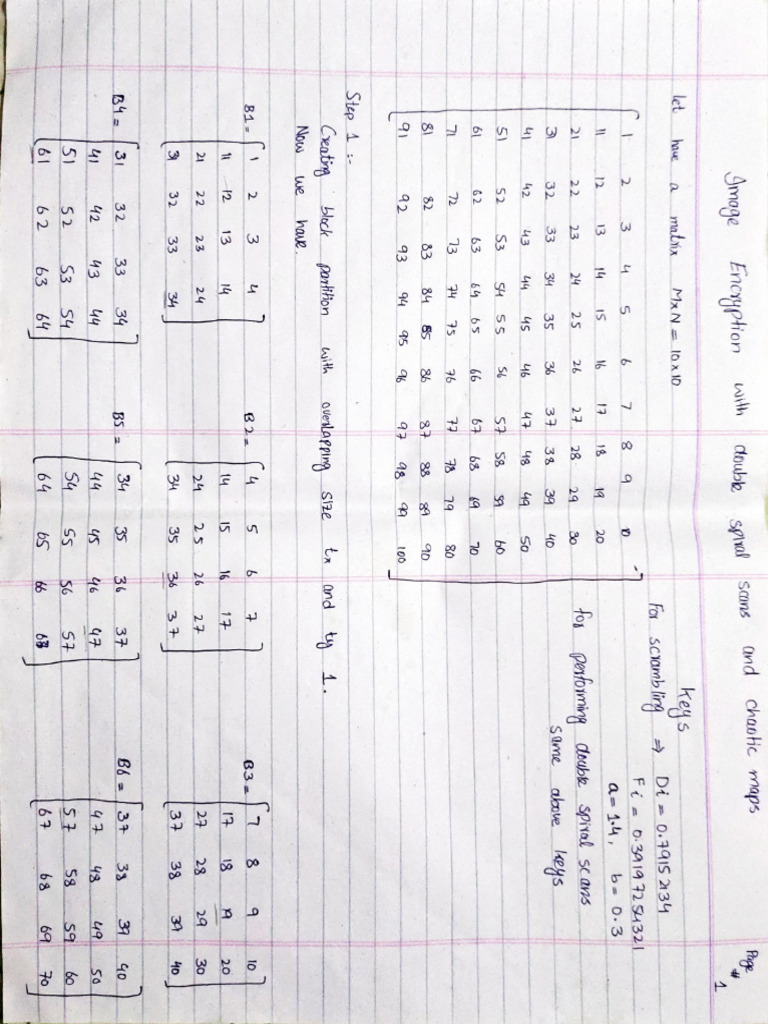 Page # 1
Image Encryption with double spiral scans and chaotic maps
let have a matrix MxN = 10x10
Keys
For scrambling ⇒ Di = 0.7915 2134
Fi = 0.39197254321
a = 1.4, b = 0.3
for performing double spiral scans
same above keys
1 2 3 4 5 6 7 8 9 10
11 12 13 14 15 16 17 18 19 20
21 22 23 24 25 26 27 28 29 30
31 32 33 34 35 36 37 38 39 40
41 42 43 44 45 46 47 48 49 50
51 52 53 54 55 56 57 58 59 60
61 62 63 64 65 66 67 68 69 70
71 72 73 74 75 76 77 78 79 80
81 82 83 84 85 86 87 88 89 90
91 92 93 94 95 96 97 98 99 100
Step 1 :-
Creating block partition with overlapping size tx and ty 1.
Now we have.
B1 = 1 2 3 4
11 12 13 14
21 22 23 24
31 32 33 34
B2 = 4 5 6 7
14 15 16 17
24 25 26 27
34 35 36 37
B3 = 7 8 9 10
17 18 19 20
27 28 29 30
37 38 39 40
B4 = 31 32 33 34
41 42 43 44
51 52 53 54
61 62 63 64
B5 = 34 35 36 37
44 45 46 47
54 55 56 57
64 65 66
B6 = 37 38 39 40
47 48 49 50
57 58 59 60
67 68 69 70